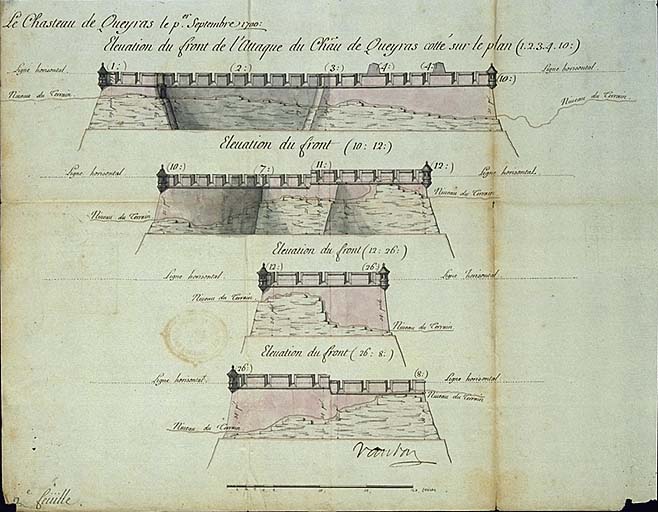 Le Chasteau de Queyras le p.er Septembre 1700:
Eleuation du front de l'Attaque du Châu de Queyras cotté sur le plan (1.2.3.4.10:)
Ligne horisontal. (1:) (2:) (3:) (4:) (4:) (10:) Ligne horisontal.
Niueau du Terrain Niueau du Terrain.
Eleuation du front (10: 12:)
Ligne horisontal. (10:) 7:) (11:) (12:) Ligne horisontal.
Niueau du Terrain Niueau du Terrain
Eleuation du front (12: 26:)
Ligne horisontal. (12:) (26:) Ligne horisontal
Niueau du Terrain Niueau du Terrain
Eleuation du front (26: 8:)
Ligne horisontal. 26:) (8:) Ligne horisontal
Niueau du Terrain Niueau du Terrain
Vauban
2e feüille